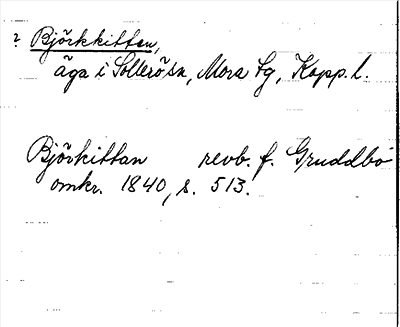 ? Björkkittan,
äga i Sollerö sn, Mora tg, Kopp. l.
Björkittan revb. f. Gruddbo
omkr. 1840, s. 513.